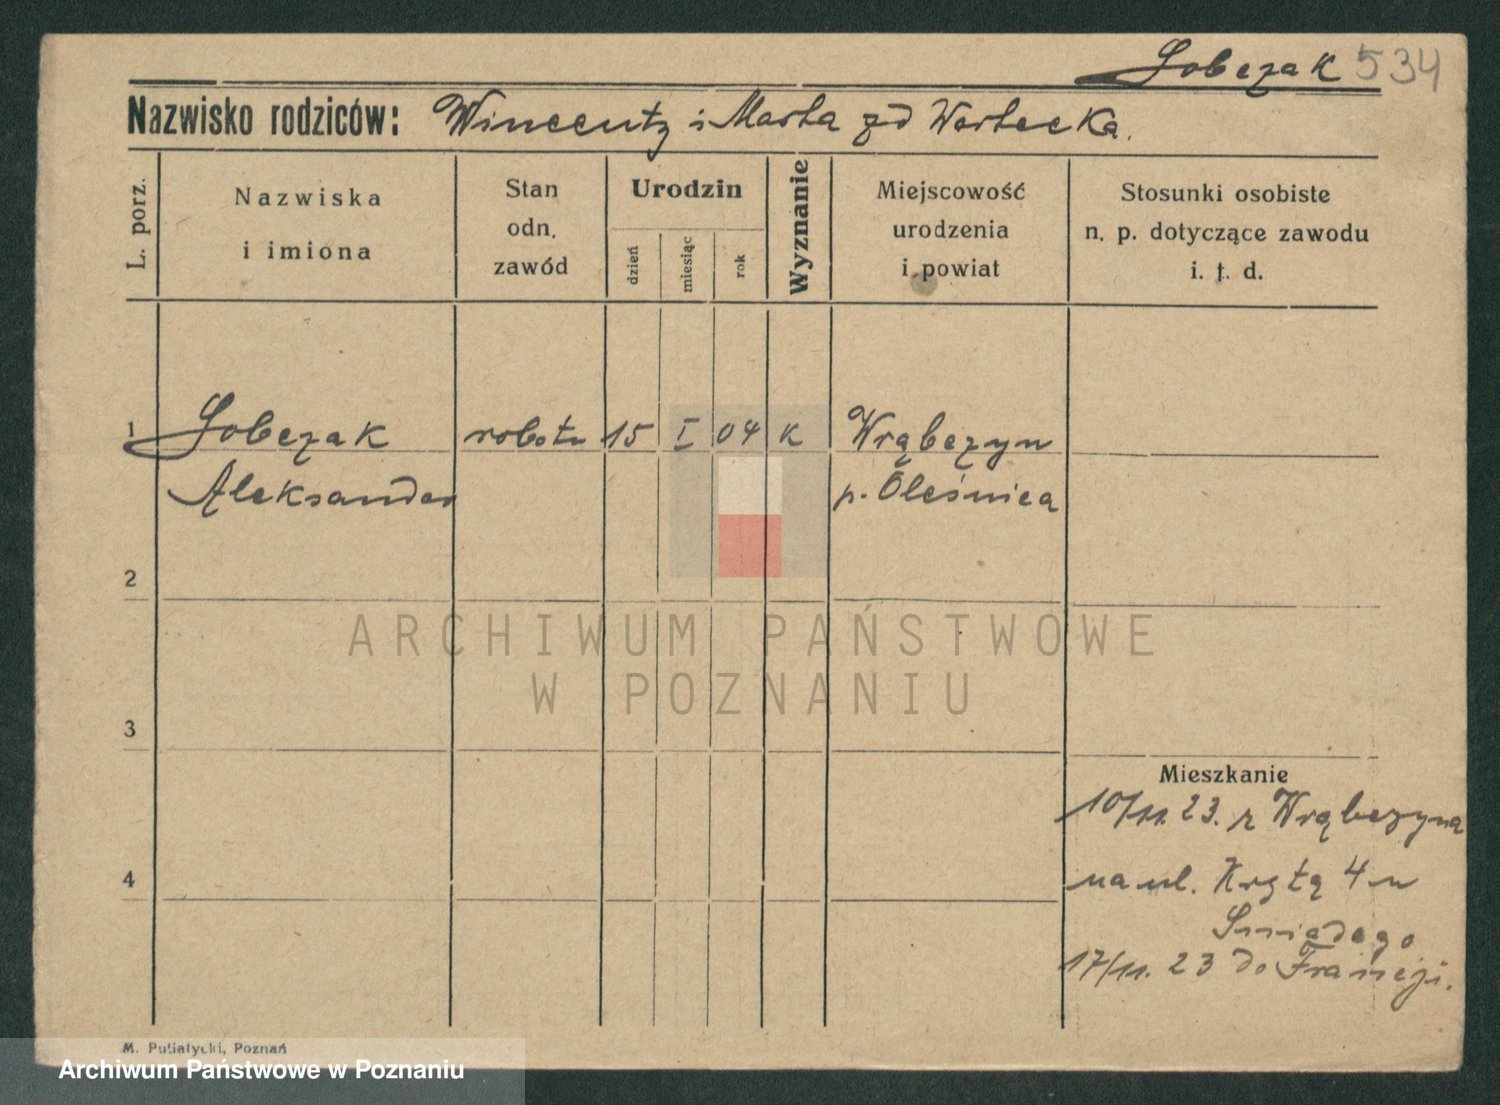 Sobczak 534
Nazwisko rodziców: Wincenty i Marta zd Wartecka.
L. porz.
Nazwiska
i imiona
Stan
odn.
zawód
Urodzin
dzień
miesiąc
rok
Wyznanie
Miejscowość
urodzenia
i powiat
Stosunki osobiste
n. p. dotyczące zawodu
i. t. d.
1 Sobczak robotn 15 I 04 K Wrąbczyn
Aleksander p. Oleśnica
2
ARCHIWUM PAŃSTWOWE
W POZNANIU
3
Mieszkanie
10/11. 23. z Wrąbczyna
4
na ul. Krętą 4 u
17/11. 23 do Francji.
M. Putiatycki, Poznań
Archiwum Państwowe w Poznaniu